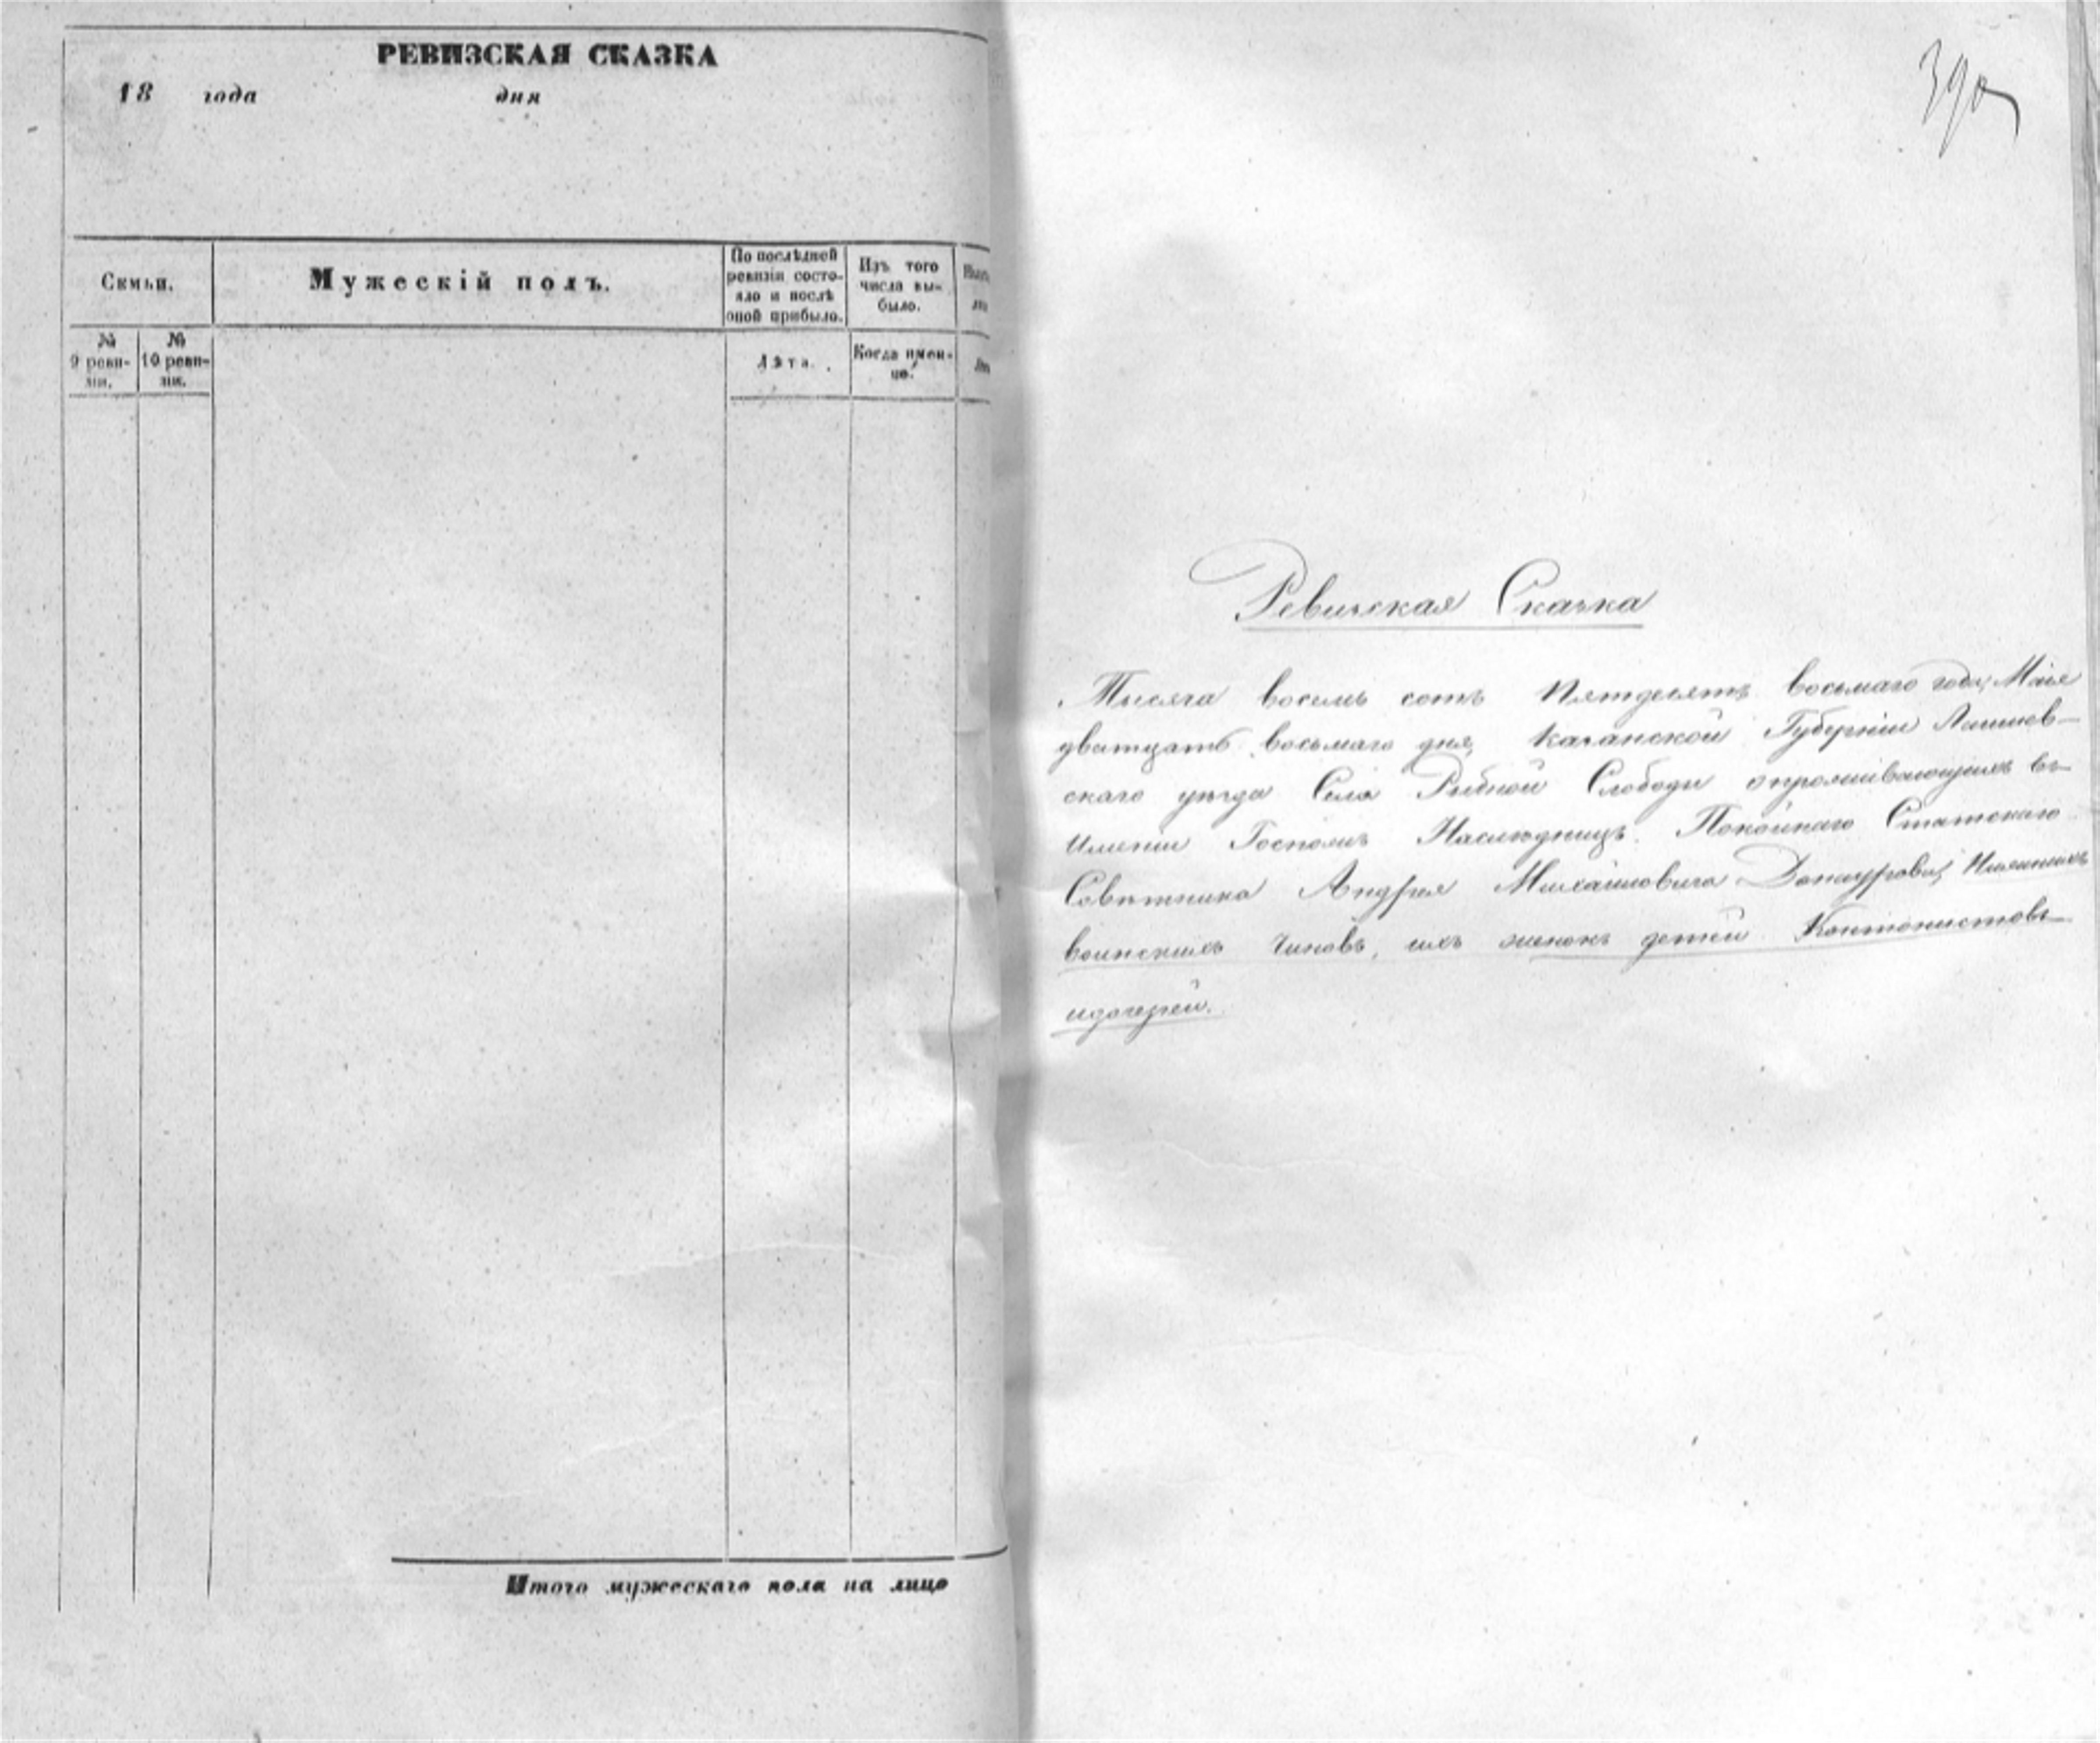 РЕВИЗСКАЯ СКАЗКА
18 года дня
Семьи.
Мужескій полъ.
По послѣдней
ревизіи состо-
яло и послѣ
оной прибыло.
Изъ того
числа вы-
было.
№
9 реви-
зіи.
№
10 реви-
зіи.
Лѣта.
Когда имен-
но.
Итого мужескаго пола на лицо
390
Ревизская Сказка
Тысяча восемь сотъ Пятдесятъ восьмаго года, Маія
дватцать восьмаго дня, Казанской Губерніи Лаишев-
скаго уѣзда Села Рыбной Слободы о проживающихъ въ
имѣніи Госпожъ Наслѣдницъ Покойнаго Статскаго
Совѣтника Андрея Михайловича Донаурова, Нижнихъ
воинскихъ чиновъ, ихъ женокъ детей Контонистовъ
и дочерей.